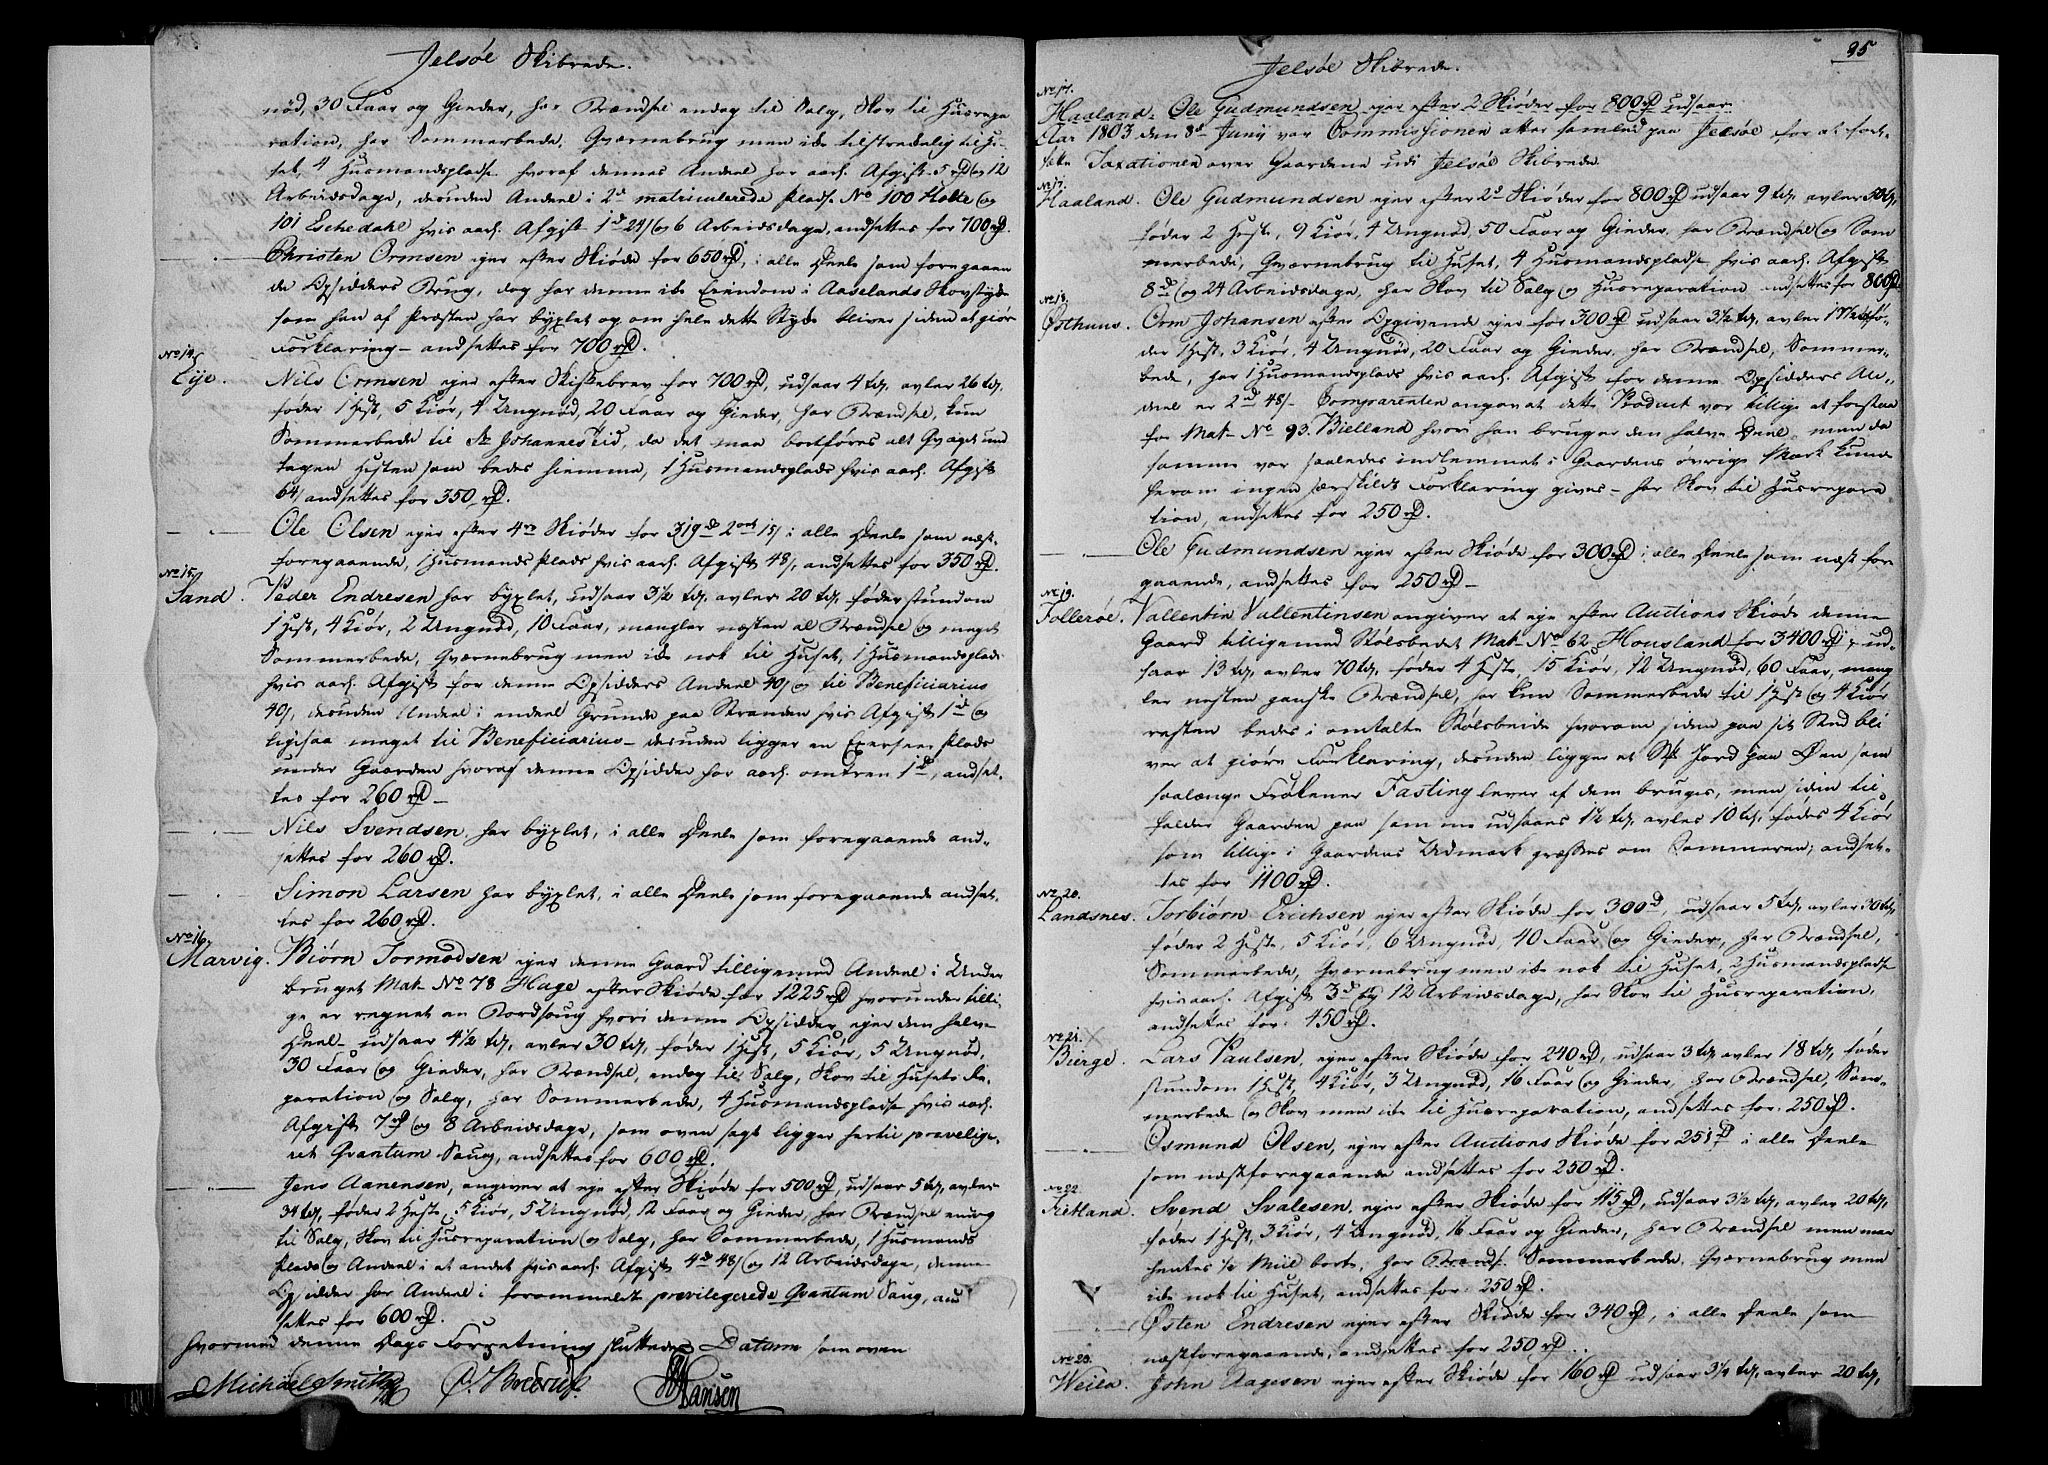 Jelsøe Skibrede.
nød, 30 Faar og Gieder, har Brændsel endog til Salg, Skov til Huusrepa
ration, har Sommerbede, Qværnebrug men ikke tilstrekelig til Hu-
set, 4 Huusmandspladse hvoraf dennes Andeel har aarl. Afgift 5 rd og 12
Arbeidsdage, desuden Andeel i 2de matriculerede Pladse No 100 Holte og
101 Eschedahl hvis aarl. Afgift 1 d 24 s og 6 Arbeidsdage, andsettes for 700 rd.
Christen Ormsen ejer efter Skiøde for 650 rd, i alle Deele som foregaaen
de Opsidders Brug, dog har denne ikke Eiendom i Aaselands Skovstykke
som han af Præsten har byxlet og om hele dette Stykke bliver siden at giøre
Forklaring - andsettes for 700 rd.
No 14.
Eije. Nils Ormsen ejer efter Skiftebrev for 700 rd, udsaar 4 tdr, avler 26 tdr,
føder 1 Hest, 5 Kiør, 4 Ungnød, 20 Faar og Gieder, har Brændsel, kun
Sommerbede til St Johannes tid, da det maa bortføres alt Qvæget und
tagen Hesten som bedes hiemme, 1 Huusmandsplads hvis aarl. Afgift
64 s andsettes for 350 rd.
Ole Olsen ejer efter 4re Skiøder for 319 d 2 ort 15 s i alle Deele som næst-
foregaaende, 1 Huusmands Plads hvis aarl. Afgift 48 s, andsettes for 350 rd.
No 15.
Sand. Peder Endresen har byxlet, udsaar 3 1/2 tdr, avler 20 tdr, føder stundom
1 Hest, 4 Kiør, 2 Ungnød, 10 Faar, mangler næsten al Brændsel og meget
Sommerbede, Qværnebrug men ikke nok til Huset, 1 Huusmandsplads
hvis aarl. Afgift for denne Opsidders Andeel 40 s og til Beneficiarius
40 s, desuden Andeel i endeel Grunde paa Stranden hvis Afgift 1 d og
ligesaa meget til Beneficiarius - desuden ligger en Exerseer Plads
under Gaarden hvoraf denne Opsidder har aarl. omtren 1 d, andset-
tes for 260 rd -
Nils Svendsen, har byxlet, i alle Deele som foregaaende and-
settes for 260 rd.
Simon Larsen har byxlet, i alle Deele som foregaaende andset-
tes for 260 rd.
No 16.
Marvig. Biørn Tormodsen ejer denne Gaard tilligemed Andeel i Under
bruget Mat- No 78 Hage efter Skiøde for 1225 rd hvorunder tilli
ge er regnet en Bordsaug hvori denne Opsidder ejer den halve
Deel - udsaar 4 1/2 tdr, avler 30 tdr, føder 1 Hest, 5 Kiør, 5 Ungnød,
30 Faar og Gieder, har Brændsel, endog til Salg, Skov til Husets Re-
paration og Salg, har Sommerbede, 4 Huusmandspladse hvis aarl.
Afgift 7 rd og 8 Arbeidsdage, som oven sagt ligger hertil previlige-
ret Qvantum Saug, andsettes for 600 rd.
Jens Aanensen, angiver at eje efter Skiøde for 500 rd, udsaar 5 tdr, avler
34 tdr, føder 2 Heste, 5 Kiør, 5 Ungnød, 12 Faar og Gieder, har Brændsel endog
til Salg, Skov til Huusreparation og Salg, har Sommerbede, 1 Huusmands
Plads og Andeel i et andet hvis aarl. Afgift 4 d 48 s og 12 Arbeidsdage, denne
Opsidder har Andeel i forommeldte previlegerede Qvantum Saug, and
settes for 600 rd.
Hvormed denne Dags Forretning sluttedes Datum som oven
Michael Smith C. Hansen
95
Jelsøe Skibrede.
No 17.
Haaland. Ole Gudmundsen ejer efter 2 Skiøder for 800 rd udsaar
Aar 1803 den 8de Junij var Commissionen atter samled paa Jelsøe, for at fort-
sette Taxationen over Gaardene udi Jelsøe Skibrede.
No 17.
Haaland. Ole Gudmundsen ejer efter 2de Skiøder for 800 rd udsaar 9 tdr, avler 50 tdr,
føder 2 Heste, 9 Kiør, 4 Ungnød, 50 Faar og Gieder, har Brændsel og Som
merbede, Qværnebrug til Huset, 4 Huusmandspladse hvis aarl. Afgift
8 d og 24 Arbeidsdage, har Skov til Salg og Huusreparation andsettes for 800 rd.
No 18.
Østhuus. Orm Johansen efter Opgivende ejer for 300 rd udsaar 3 1/2 tdr, avler 17 1/2 tdr fø-
der 1 Hest, 3 Kiør, 4 Ungnød, 20 Faar og Gieder, har Brændsel, Sommer-
bede, har 1 Huusmandsplads hvis aarl. Afgift for denne Opsidders An-
deel er 2 d 48 s - Comparenten angav at dette Product var tillige at forstaa
for Mat- No 93. Bielland hvori han bruger den halve Deel, men da
samme var saaledes indlemmet i Gaardens øvrige Mark kunde
herom ingen særskildt Forklaring gives - har Skov til Huusrepara
tion, andsettes for 250 rd.
Ole Gudmundsen ejer efter Skiøde for 300 rd, i alle Deele som næst fore
gaaende, andsettes for 250 rd -
No 19.
Follerøe. Vallentin Vallentinsen angiver at eje efter Auctions Skiøde denne
Gaard tilligemed Stølsbedet Mat- No 62 Housland for 3400 rd, ud-
saar 13 tdr, avler 70 tdr, føder 4 Heste, 15 Kiør, 12 Ungnød, 60 Faar, mang
ler nesten ganske Brændsel, har kun Sommerbede til 1 Hest og 4 Kiør
resten bedes i omtalte Stølsbeide hvorom siden paa sit Sted bli
ver at giøre Forklaring, desuden ligger et St. Jord paa Øen som
saalænge Frøkener Fasting lever af dem bruges, men siden til-
falder Gaarden paa som me udsaaes 1 1/2 tdr, avles 10 tdr, fødes 4 Kiør
som tillige i Gaardens Udmark græsses om Sommeren; andset-
tes for 1100 rd.
No 20.
Landsnes. Torbiørn Erichsen ejer efter Skiøde for 300 d, udsaar 5 tdr, avler 30 tdr,
føder 2 Heste, 5 Kiør, 6 Ungnød, 40 Faar og Gieder, har Brændsel,
Sommerbede, Qværnebrug men ikke nok til Huset, 2 Huusmandspladse
hvis aarl. Afgift 3 d og 12 Arbeidsdage, har Skov til Huusreparation,
andsettes for 450 rd.
No 21.
Bierge. Lars Paulsen, ejer efter Skiøde for 240 rd, udsaar 3 tdr, avler 18 tdr, føder
stundom 1 Hest, 4 Kiør, 3 Ungnød, 16 Faar og Gieder, har Brændsel, Som-
merbede og Skov men ikke til Huusreparation, andsettes for 250 rd.
Osmund Olsen, ejer efter Auctions Skiøde for 251 rd i alle Deele
som næstforegaaende andsettes for 250 rd.
No 22.
Tietland. Svend Svalesen, ejer efter Skiøde for 115 rd, udsaar 3 1/2 tdr, avler 20 tdr,
føder 1 Hest, 3 Kiør, 4 Ungnød, 16 Faar og Gieder, har Brændsel men maa
hentes 1/2 Miil borte, har Brænds. Sommerbede, Qværnebrug men
ikke nok til Huset, andsettes for 250 rd.
Østen Endresen ejer efter Skiøde for 340 rd, i alle Deele som
næstforegaaende, andsettes for 250 rd.
No 23.
Weila. John Aagesen ejer efter Skiøde for 160 rd udsaar 3 1/2 tdr, avler 20 tdr,